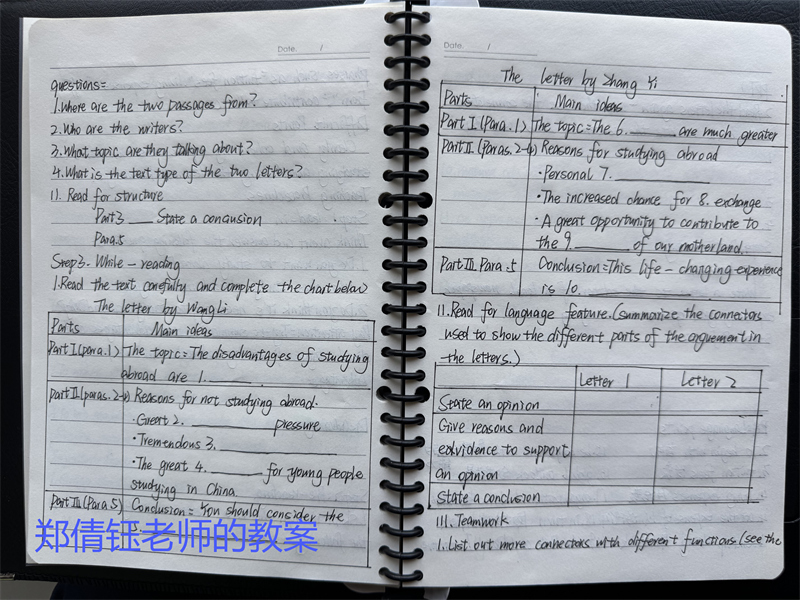 Date. /
questions=
1.Where are the two passages from?
2.Who are the writers?
3.What topic are they talking about?
4.What is the text type of the two letters?
II. Read for structure
Part3 ___ State a conclusion
Para.5
Step3. While-reading
1.Read the text carefully and complete the chart below
The letter by Wang Li
Parts Main ideas
Part I(para.1) The topic=The disadvantages of studying
abroad are 1.______.
part II(paras.2-4) Reasons for not studying abroad.
·Great 2. ________ pressure
·Tremendous 3. ________
·The great 4. ______ for young people
studying in China.
Part III(Para 5) Conclusion= You should consider the
郑倩钰老师的教案
Date. /
The letter by Zhang Yi
Parts Main ideas
Part I(Para.1) The topic=The 6. ______ are much greater
Part II.(Paras.2-4) Reasons for studying abroad
·Personal 7. ________
·The increased chance for 8. exchange
·A great opportunity to contribute to
the 9. ______ of our motherland.
Part III. Para.5 Conclusion=This life-changing experience
is 10 ________
II.Read for language feature.(summarize the connectors
used to show the different parts of the arguement in
the letters.)
Letter 1 Letter 2
State an opinion
Give reasons and
eolvidence to support
an opinion
State a conclusion
III. Teamwork
1.List out more connectors with different functions.(see the